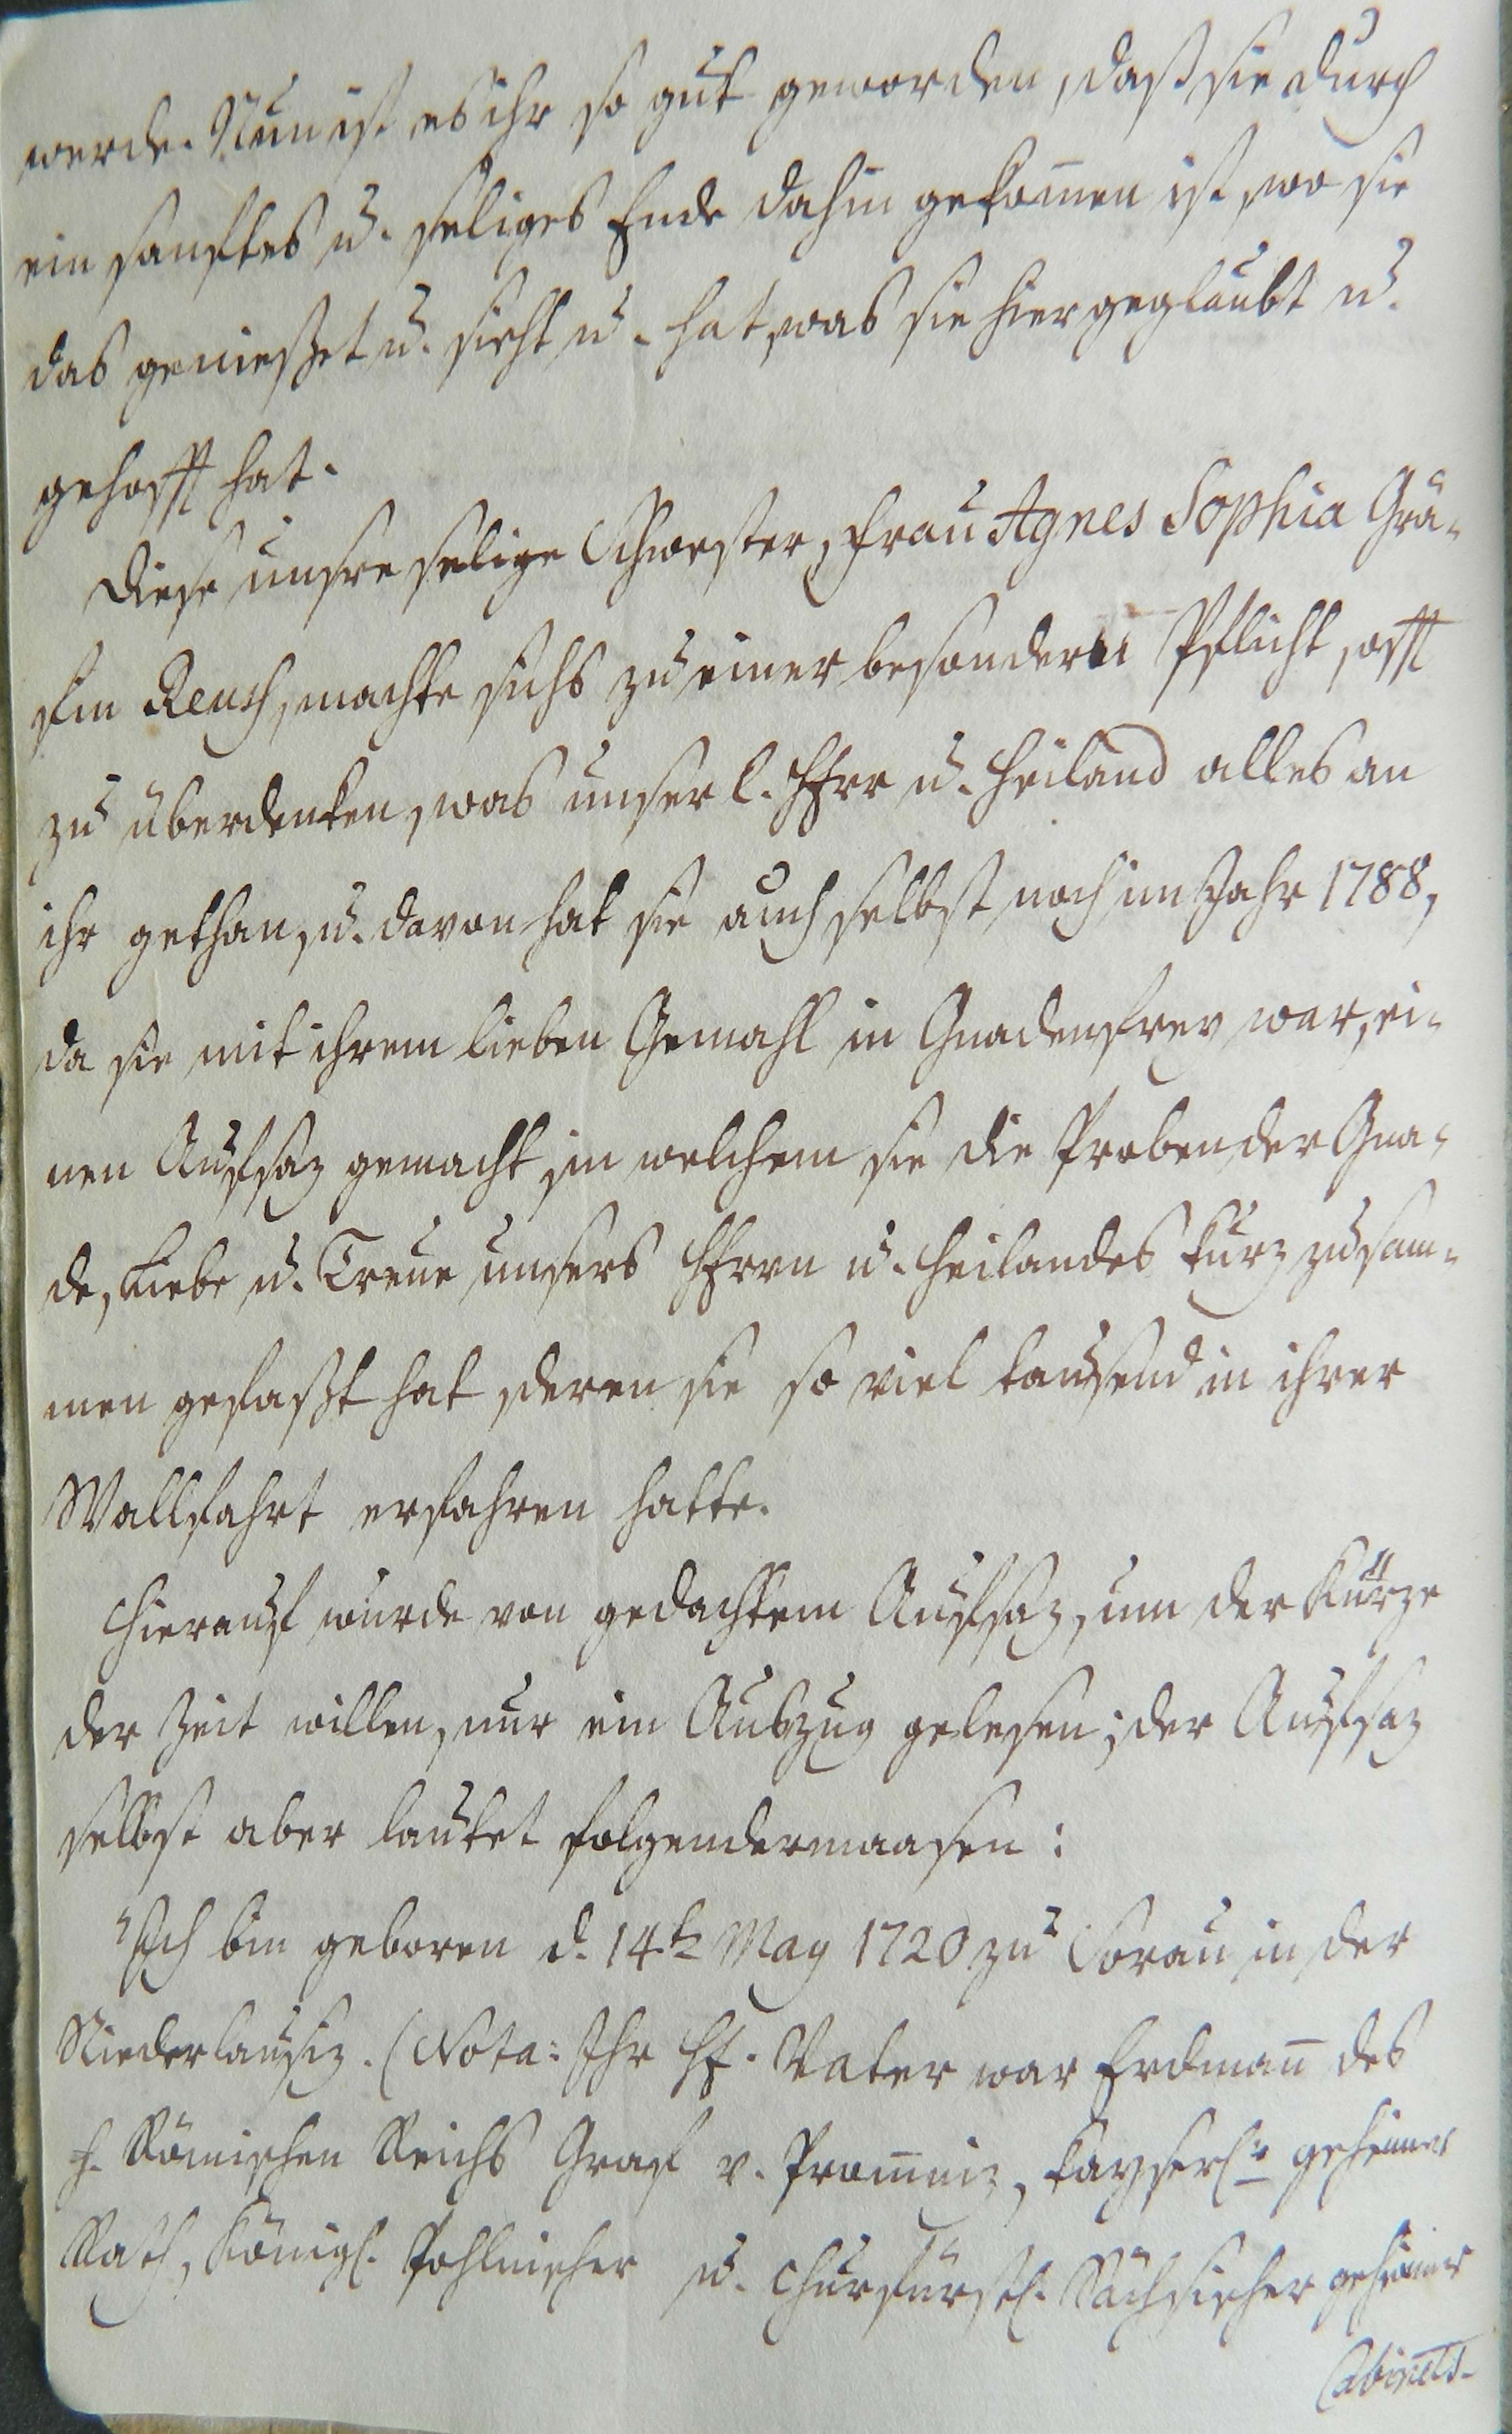 werde. Nun ist es ihr so gut geworden, daß sie durch
ein sanftes u. seliges Ende dahin gekom̄en ist, wo sie
das genießet u. sieht u. hat, was sie hier geglaubt u.
gehofft hat.
Diese unsre selige Schwester, Frau Agnes Sophia Grä-
fin Reuß, machte sichs zu einer besondern Pflicht, offt
zu überdenken, was unser l. HErr u. Heiland alles an
ihr gethan, u. davon hat sie auch selbst noch im Jahr 1788,
da sie mit ihrem lieben Gemahl in Gnadenfrey war, ei-
nen Aufsaz gemacht, in welchem sie die Proben der Gna-
de, Liebe u. Treue unsers HErrn u. Heilandes kurz zusam-
men gefaßt hat, deren sie so viel tausend in ihrer
Wallfahrt erfahren hatte.
Hierauf wurde von gedachtem Aufsaz, um der Kürze
der Zeit willen, nur ein Auszug gelesen; der Aufsaz
selbst aber lautet folgendermaasen:
Ich bin geboren d. 14tn May 1720 zu Sorau in der
Niederlausiz. (Nota: Ihr Hr. Vater war Erdman̄ des
H. Römischen Reichs Graf v. Prom̄niz, Kayserlr geheimer
Rath, Königl. Pohlnischer u. Churfürstl. Sächsischer geheimer
Cabinets-